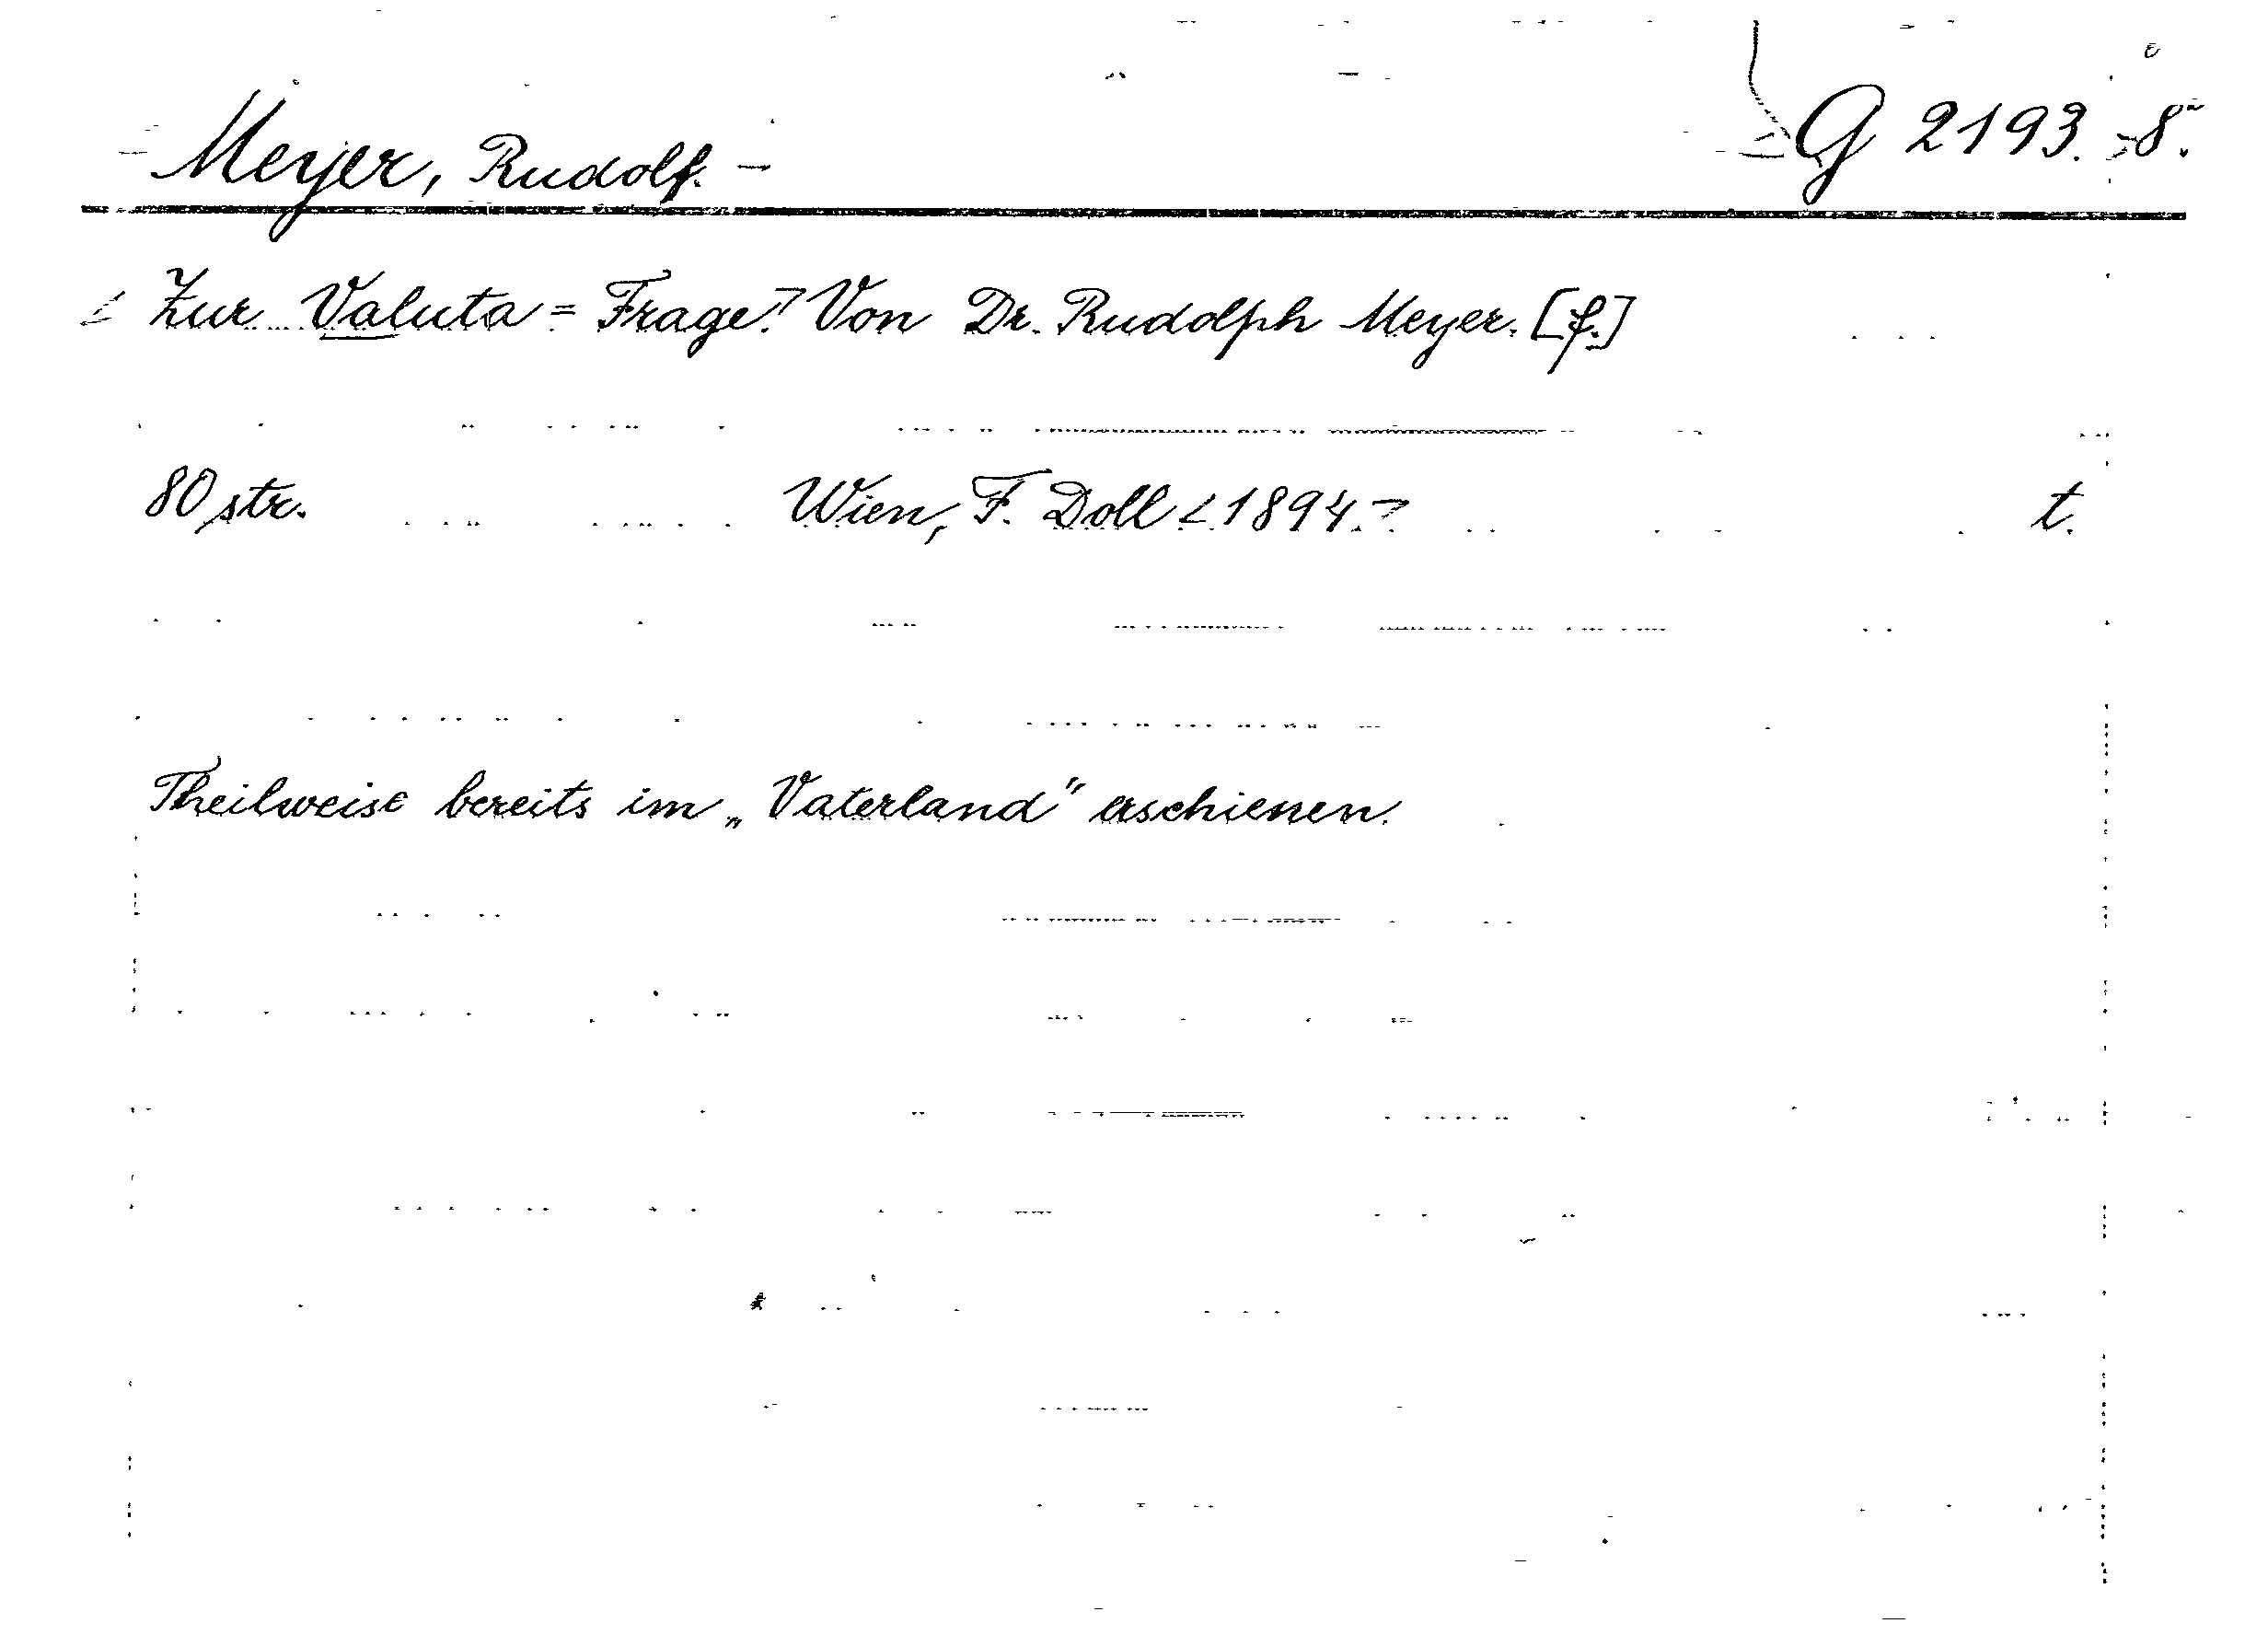 Meyer, Rudolf. G 2193. 8.
Zur Valuta=Frage. Von Dr. Rudolph Meyer. [f.]
80 str. Wien, F. Doll <1894.> t.
Theilweise bereits im „Vaterland" erschienen.